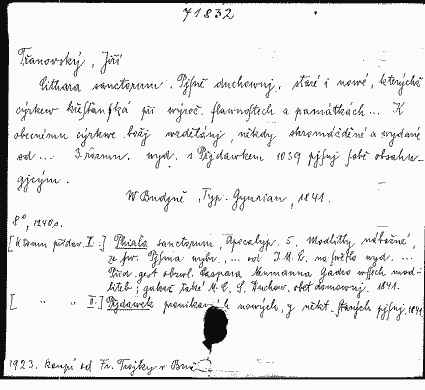 71832
Tranovský, Jiří
Cithara sanctorum. Pjsně duchownj, staré i nowé, kterých
cýrkew křesťanská při výroč. slawnostech a památkách... K
obecnému cýrkwe božj wzdělánj, někdy shromážděné a wydané
od ... Z rozmn. wyd. s Přjdawkem 1039 pjsnj sobě obsahu-
gjcým.
W Budjně, Typ. Gyurian, 1841.
8°, 1240 s.
[K tomu přidav. I.:] Phiala sanctorum, Apocalyp. 5. Modlitby nábožné,
ze sw. Pjsma wybr., ... od J. M. C. na swětlo wyd. ...
Přid. gest obzwl. Kaspara Neumanna Gádro wssech mod-
liteb: gakož také M. C. S. Duchow. obět domownj. 1841.
[ " " II.:] Přjdawek nowých, y někt. starých pjsnj. 1841
1923. koupí od Fr. Trojky v Brně